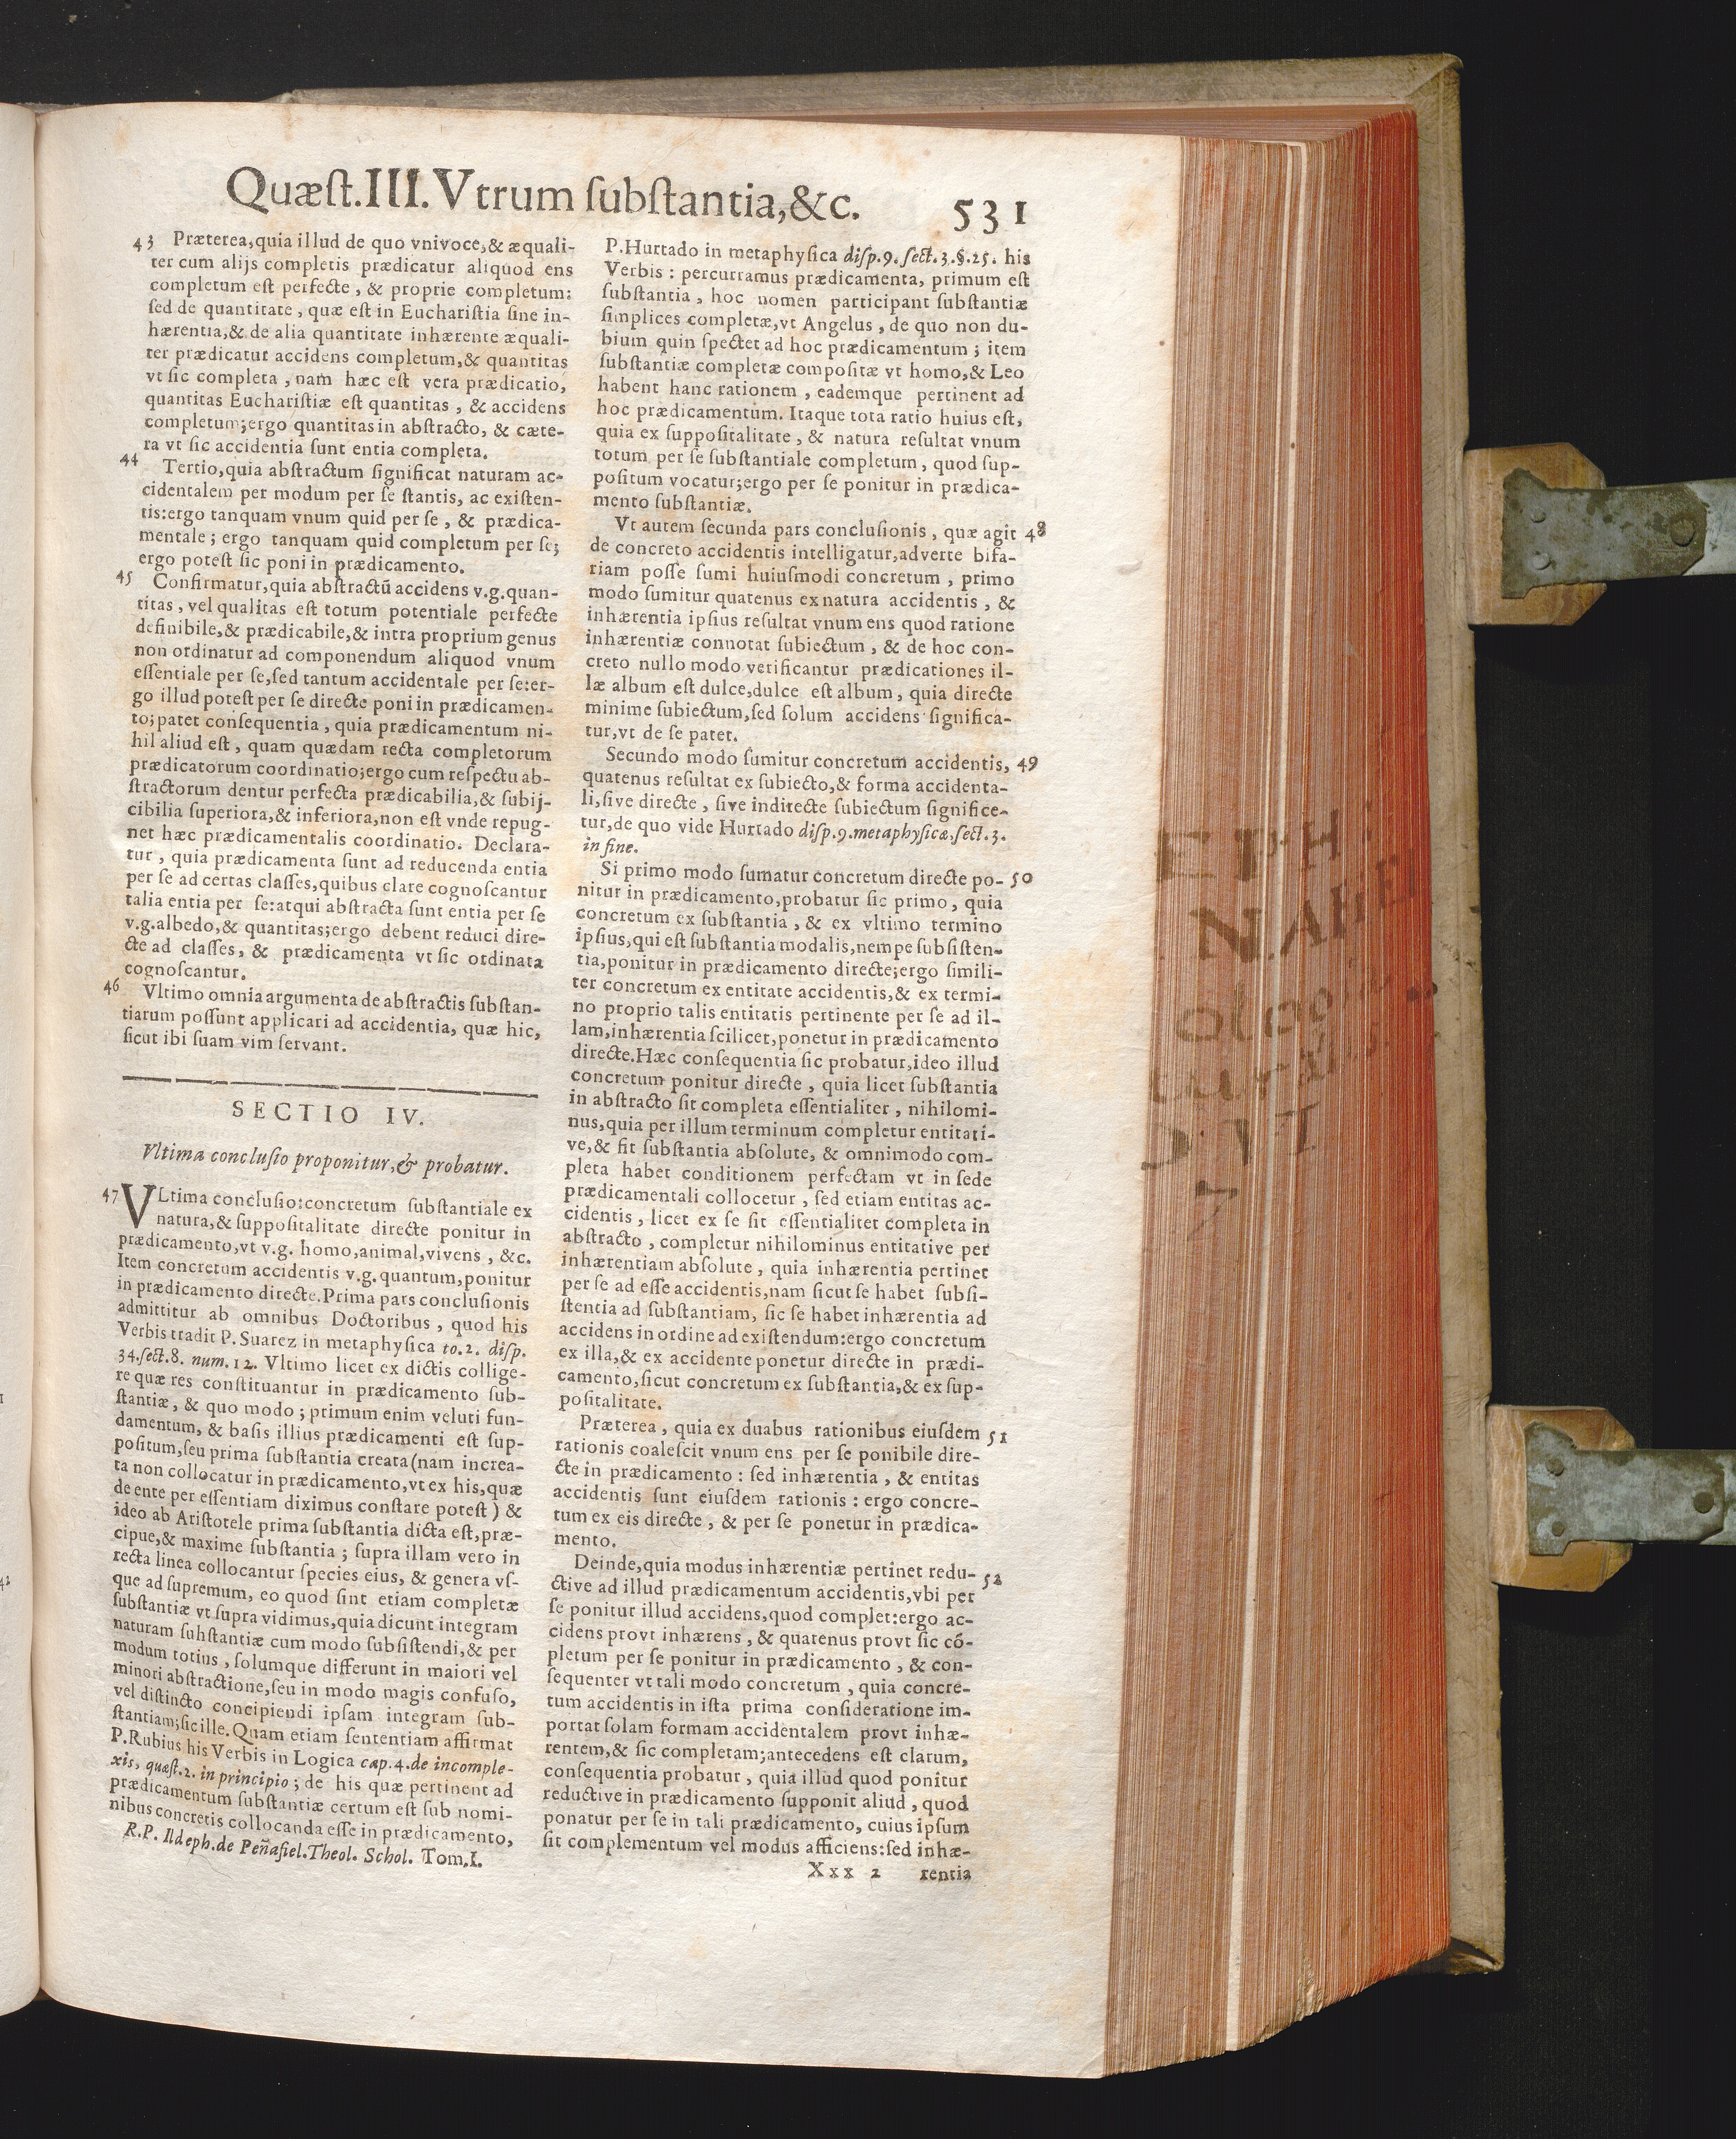 Quæſt.III. Vtrum ſubſtantia,&c. 531
43 Præterea,quia illud de quo vnivoce,& æquali-
ter cum alijs completis prædicatur aliquod ens
completum eſt perfecte, & proprie completum:
ſed de quantitate, quæ eſt in Euchariſtia ſine in-
hærentia,& de alia quantitate inhærente æquali-
ter prædicatur accidens completum,& quantitas
vt ſic completa, nam hæc eſt vera prædicatio,
quantitas Euchariſtiæ eſt quantitas, & accidens
completum;ergo quantitas in abſtracto, & cæte-
ra vt ſic accidentia ſunt entia completa.
44 Tertio,quia abſtractum ſignificat naturam ac-
cidentalem per modum per ſe ſtantis, ac exiſten-
tis:ergo tanquam vnum quid per ſe, & prædica-
mentale; ergo tanquam quid completum per ſe;
ergo poteſt ſic poni in prædicamento.
45 Confirmatur,quia abſtractũ accidens v.g.quan-
titas, vel qualitas eſt totum potentiale perfecte
definibile,& prædicabile,& intra proprium genus
non ordinatur ad componendum aliquod vnum
eſſentiale per ſe,ſed tantum accidentale per ſe:er-
go illud poteſt per ſe directe poni in prædicamen-
to;patet conſequentia, quia prædicamentum ni-
hil aliud eſt, quam quædam recta completorum
prædicatorum coordinatio;ergo cum reſpectu ab-
ſtractorum dentur perfecta prædicabilia,& ſubij-
cibilia ſuperiora,& inferiora,non eſt vnde repug-
net hæc prædicamentalis coordinatio. Declara-
tur, quia prædicamenta ſunt ad reducenda entia
per ſe ad certas claſſes,quibus clare cognoſcantur
talia entia per ſe:atqui abſtracta ſunt entia per ſe
v.g.albedo,& quantitas;ergo debent reduci dire-
cte ad claſſes, & prædicamenta vt ſic ordinata
cognoſcantur.
46 Vltimo omnia argumenta de abſtractis ſubſtan-
tiarum poſſunt applicari ad accidentia, quæ hic,
ſicut ibi ſuam vim ſervant.
SECTIO IV.
Vltima concluſio proponitur,& probatur.
47 VLtima concluſio:concretum ſubſtantiale ex
natura,& ſuppoſitalitate directe ponitur in
prædicamento,vt v.g. homo,animal,vivens, &c.
Item concretum accidentis v.g.quantum,ponitur
in prædicamento directe.Prima pars concluſionis
admittitur ab omnibus Doctoribus, quod his
Verbis tradit P.Suarez in metaphyſica to.2. diſp.
34.ſect.8. num.12. Vltimo licet ex dictis collige-
re quæ res conſtituantur in prædicamento ſub-
ſtantiæ, & quo modo; primum enim veluti fun-
damentum, & baſis illius prædicamenti eſt ſup-
poſitum,ſeu prima ſubſtantia creata(nam increa-
ta non collocatur in prædicamento,vt ex his,quæ
de ente per eſſentiam diximus conſtare poteſt) &
ideo ab Ariſtotele prima ſubſtantia dicta eſt,præ-
cipue,& maxime ſubſtantia; ſupra illam vero in
recta linea collocantur ſpecies eius, & genera vſ-
que ad ſupremum, eo quod ſint etiam completæ
ſubſtantiæ vt ſupra vidimus,quia dicunt integram
naturam ſuhſtantiæ cum modo ſubſiſtendi,& per
modum totius, ſolumque differunt in maiori vel
minori abſtractione,ſeu in modo magis confuſo,
vel diſtincto concipiendi ipſam integram ſub-
ſtantiam;ſic ille. Quam etiam ſententiam affirmat
P.Rubius his Verbis in Logica cap.4.de incomple-
xis, quæſt.2. in principio; de his quæ pertinent ad
prædicamentum ſubſtantiæ certum eſt ſub nomi-
nibus concretis collocanda eſſe in prædicamento,
R.P. Ildeph.de Peñafiel.Theol. Schol. Tom.I.
P.Hurtado in metaphyſica diſp.9. ſect.3.§.25. his
Verbis: percurramus prædicamenta, primum eſt
ſubſtantia, hoc nomen participant ſubſtantiæ
ſimplices completæ,vt Angelus, de quo non du-
bium quin ſpectet ad hoc prædicamentum; item
ſubſtantiæ completæ compoſitæ vt homo,& Leo
habent hanc rationem, eademque pertinent ad
hoc prædicamentum. Itaque tota ratio huius eſt,
quia ex ſuppoſitalitate, & natura reſultat vnum
totum per ſe ſubſtantiale completum, quod ſup-
poſitum vocatur;ergo per ſe ponitur in prædica-
mento ſubſtantiæ.
Vt autem ſecunda pars concluſionis, quæ agit 48
de concreto accidentis intelligatur,adverte bifa-
riam poſſe ſumi huiuſmodi concretum, primo
modo ſumitur quatenus ex natura accidentis, &
inhærentia ipſius reſultat vnum ens quod ratione
inhærentiæ connotat ſubiectum, & de hoc con-
creto nullo modo verificantur prædicationes il-
læ album eſt dulce,dulce eſt album, quia directe
minime ſubiectum,ſed ſolum accidens ſignifica-
tur,vt de ſe patet.
Secundo modo ſumitur concretum accidentis, 49
quatenus reſultat ex ſubiecto,& forma accidenta-
li,ſive directe, ſive indirecte ſubiectum ſignifice-
tur,de quo vide Hurtado diſp.9.metaphyſicæ,ſect.3.
in fine.
Si primo modo ſumatur concretum directe po- 50
nitur in prædicamento,probatur ſic primo, quia
concretum ex ſubſtantia, & ex vltimo termino
ipſius,qui eſt ſubſtantia modalis,nempe ſubſiſten-
tia,ponitur in prædicamento directe;ergo ſimili-
ter concretum ex entitate accidentis,& ex termi-
no proprio talis entitatis pertinente per ſe ad il-
lam,inhærentia ſcilicet,ponetur in prædicamento
directe.Hæc conſequentia ſic probatur,ideo illud
concretum ponitur directe, quia licet ſubſtantia
in abſtracto ſit completa eſſentialiter, nihilomi-
nus,quia per illum terminum completur entitati-
ve,& fit ſubſtantia abſolute, & omnimodo com-
pleta habet conditionem perfectam vt in ſede
prædicamentali collocetur, ſed etiam entitas ac-
cidentis, licet ex ſe ſit eſſentialiter completa in
abſtracto, completur nihilominus entitative per
inhærentiam abſolute, quia inhærentia pertinet
per ſe ad eſſe accidentis,nam ſicut ſe habet ſubſi-
ſtentia ad ſubſtantiam, ſic ſe habet inhærentia ad
accidens in ordine ad exiſtendum:ergo concretum
ex illa,& ex accidente ponetur directe in prædi-
camento,ſicut concretum ex ſubſtantia,& ex ſup-
poſitalitate.
Præterea, quia ex duabus rationibus eiuſdem 51
rationis coaleſcit vnum ens per ſe ponibile dire-
cte in prædicamento: ſed inhærentia, & entitas
accidentis ſunt eiuſdem rationis: ergo concre-
tum ex eis directe, & per ſe ponetur in prædica-
mento.
Deinde,quia modus inhærentiæ pertinet redu- 52
ctive ad illud prædicamentum accidentis,vbi per
ſe ponitur illud accidens,quod complet:ergo ac-
cidens provt inhærens, & quatenus provt ſic cõ-
pletum per ſe ponitur in prædicamento, & con-
ſequenter vt tali modo concretum, quia concre-
tum accidentis in iſta prima conſideratione im-
portat ſolam formam accidentalem provt inhæ-
rentem,& ſic completam;antecedens eſt clarum,
conſequentia probatur, quia illud quod ponitur
reductive in prædicamento ſupponit aliud, quod
ponatur per ſe in tali prædicamento, cuius ipſum
ſit complementum vel modus afficiens:ſed inhæ-
Xxx 2 rentia